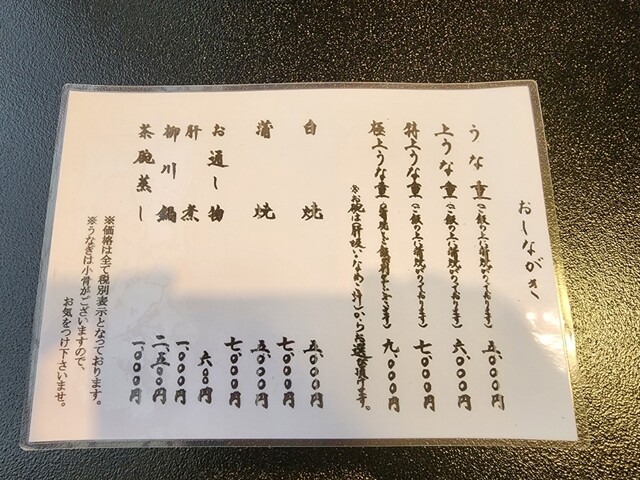 おしながき
うな重(ご飯の上に蒲焼がのっております) 五、〇〇〇円
上うな重(ご飯の上に蒲焼がのっております) 六、〇〇〇円
特上うな重(ご飯の上に蒲焼がのっております) 七、〇〇〇円
極上うな重(蒲焼とご飯別盛となります) 九、〇〇〇円
※お椀は(肝吸い・なめこ汁)からお選び頂けます。
白焼 五、〇〇〇円
七、〇〇〇円
蒲焼 五、〇〇〇円
七、〇〇〇円
お通し物 六〇〇円
肝煮 一、〇〇〇円
柳川鍋 二、五〇〇円
茶碗蒸し 一、〇〇〇円
※価格は全て税別表示となっております。
※うなぎは小骨がございますので、
お気をつけ下さいませ。